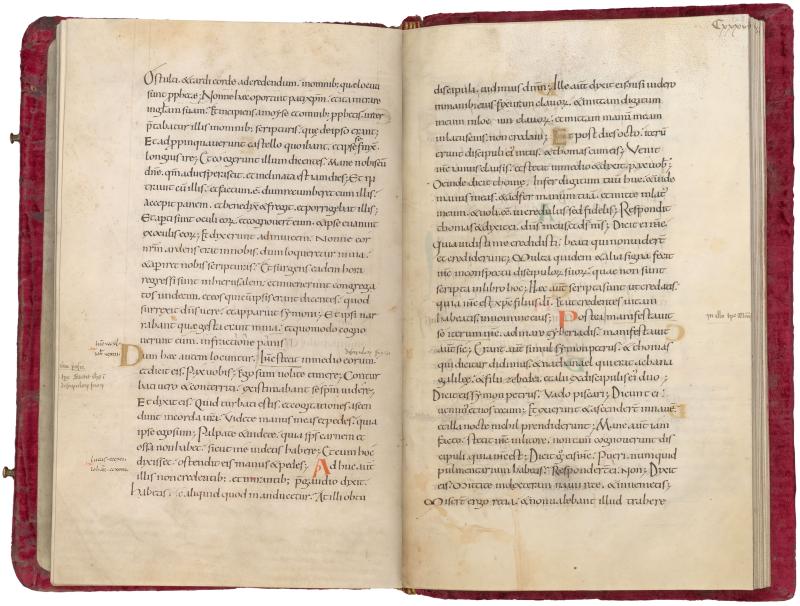 O stulti & tardi corde ad credendum. in omnib; que locuti
sunt pphetae; Nonne haec oportuit pati xpm. & ita intrare
in głam suam. Et incipiens a moyse & omnib; pphetis. inter
p̄tabatur illis in omnib; scripturis. quę de ipso erant;
Et adppinquaverunt castello quo ibant. et ipse finx&
longius ire; Et coegerunt illum dicentes. Mane nobiscū
dn̄e. qm̄ advesperascit. et inclinata est iam dies; Et in
travit cū illis. et factum. ē dum recumberet cum illis.
accepit panem. et benedix& fregit. et porrigebat illis;
Et aperti sunt oculi eor. et cognover eum. & ipse evanuit
ex oculis eor; Et dixerunt ad invicem. Nonne cor
nr̄m. ardens erat in nobis. dum loqueretur in via.
& aperir& nobis scripturas; Et surgentes eadem hora
regressi sunt in hierusalem. et invenerunt congrega
tos undecim. et eos qui cū ipsis erant dicentes. quod
surrexit dn̄s vere. et apparuit symoni; Et ipsi nar
rabant quę gesta erant in via. et quomodo cogno
verunt eum. in fractione panis
Dum haec autem locuntur. ih̄s stetit in medio eorum.
et dicit eis. Pax vobis; Ego sum nolite timere; Contur
bati vero & conterriti. existimabant se sp̄m videre;
Et dixit eis. Quid turbati estis. et cogitationes ascen
dunt in corda vr̄a; Videte manus meas et pedes. quia
ipse ego sum; Palpate & videte. quia sp̄s carnem et
ossa non habet. sicut me videtis habere; Et cum hoc
dixisset. ostendit eis manus & pedes; Adhuc aūt
illis non credentib; et mirantib; p̄ gaudio dixit.
habetis hic aliquid quod manducetur. At illi obtu
Cxxxv
discipuli. vidimus dn̄m; Ille aūt dixit eis. nisi videro
in manib; eius fixuram clavor. & mittam digitum
meum in locum clavor. et mittam manum meam
in latus eius. non credam; Et post dies octo. iterū
erant discipuli eius intus. & thomas cum eis; Venit
ih̄s ianuis clausis. et stetit in medio & dixit. pax vob;
Deinde dicit thomę. Infer digitum tuū huc. & vide
manus meas. & adfer manum tuā. et mitte in lat'
meum. & noli eē incredulus sed fidelis; Respondit
thomas & dixit ei. dn̄s meus et ds̄ ms̄; Dicit ei ih̄s.
Quia vidisti me credidisti; beati qui non viderunt
et crediderunt; Multa quidem & alia signa fecit
ih̄s in conspectu discipulor. suor. quae non sunt
scripta in libro hoc; Haec aūt scripta sunt ut credatis.
quia ih̄s est xp̄s filius dī. Et ut credentes vitam
habeatis in nomine eius; Postea manifestavit
se iterum ih̄s. ad mare tyberiadis. manifestavit
aūt sic; Erant aūt simul symon petrus. & thomas
qui dicitur didimus & nathanael qui erat a chana
galileę. & filii zebedei. et alii ex discipulis ei' duo;
Dicit eis symon petrus. Vado piscari; Dicunt ei
venimus et nos tecum; Et exierunt & ascender in navē.
et illa nocte nihil prendiderunt; Mane aūt iam
facto. stetit ih̄s in litore. non tam̄ cognoverunt dis
cipuli. quia ih̄s est; Dicit g̊ eis ih̄s. Pueri. numquid
pulmentarium habetis; Responder ei. Non; Dixit
eis. Mittite in dexteram navis rete. & invenietis;
Miserunt ergo rete. & non valebant illud trahere